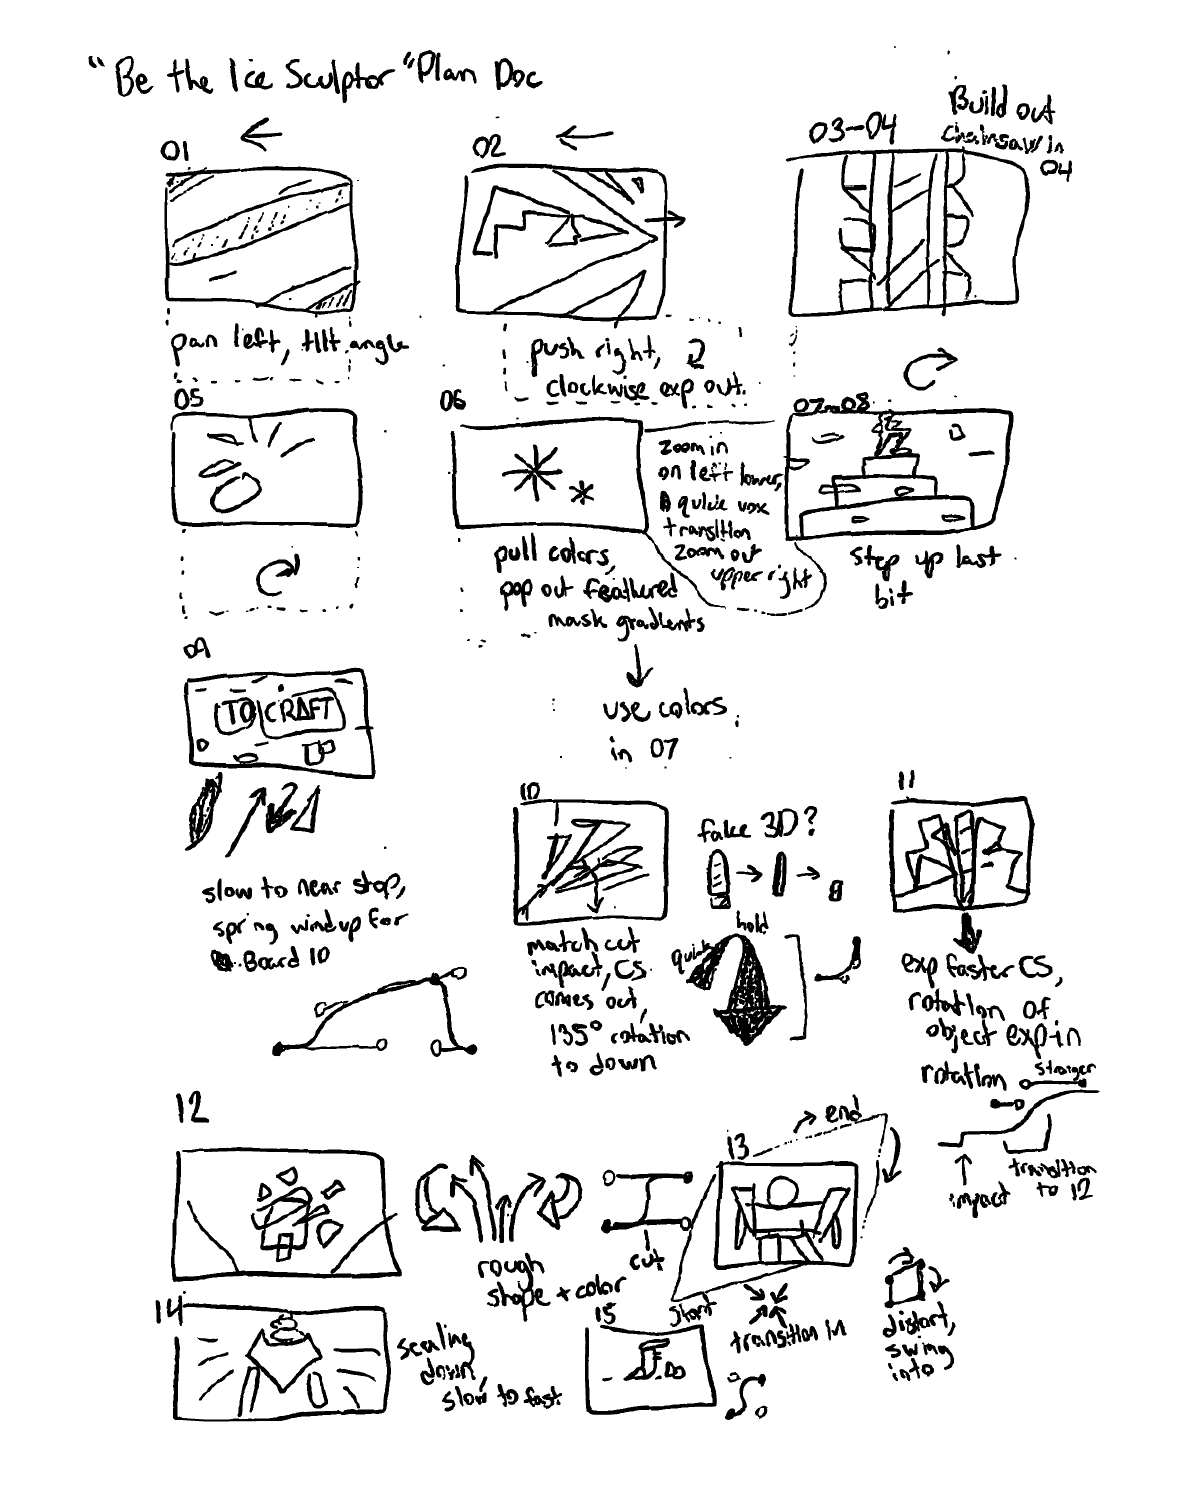 "Be the Ice Sculptor" Plan Doc
01
02
03-04
Build out
chainsaw in
04
pan left, tilt angle
push right,
clockwise exp out.
05
06
07-08
zoom in
on left lower,
quick vox
transition
zoom out
upper right
pull colors,
pop out feathered
mask gradients
step up last
bit
use colors
in 07
09
TO CRAFT
slow to near stop,
spring windup for
Board 10
10
match cut
impact, CS
comes out,
135° rotation
to down
fake 3D?
quick
hold
11
exp faster CS,
rotation of
object exp in
rotation
stronger
impact
transition
to 12
12
rough
shape + color
cut
13
end
start
transition in
distort,
swing
into
14
scaling
down,
slow to fast
15